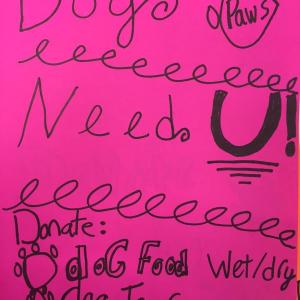 Dogs
Paws
Needs U!
Donate:
dog Food Wet/dry